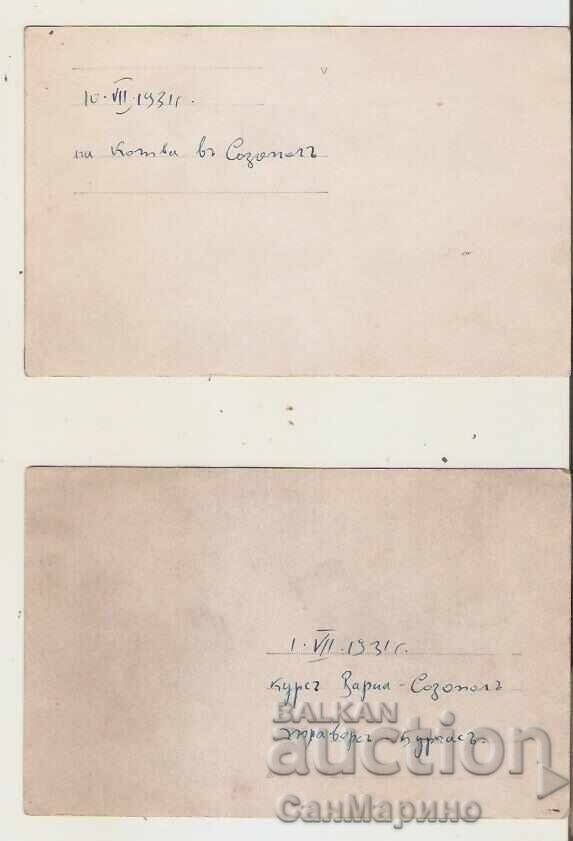 10. VII. 1931 г.
на котва въ Созополъ
1. VII. 1931 г.
курсъ Варна - Созополъ
траверсъ
BALKAN
auction
СанМарино